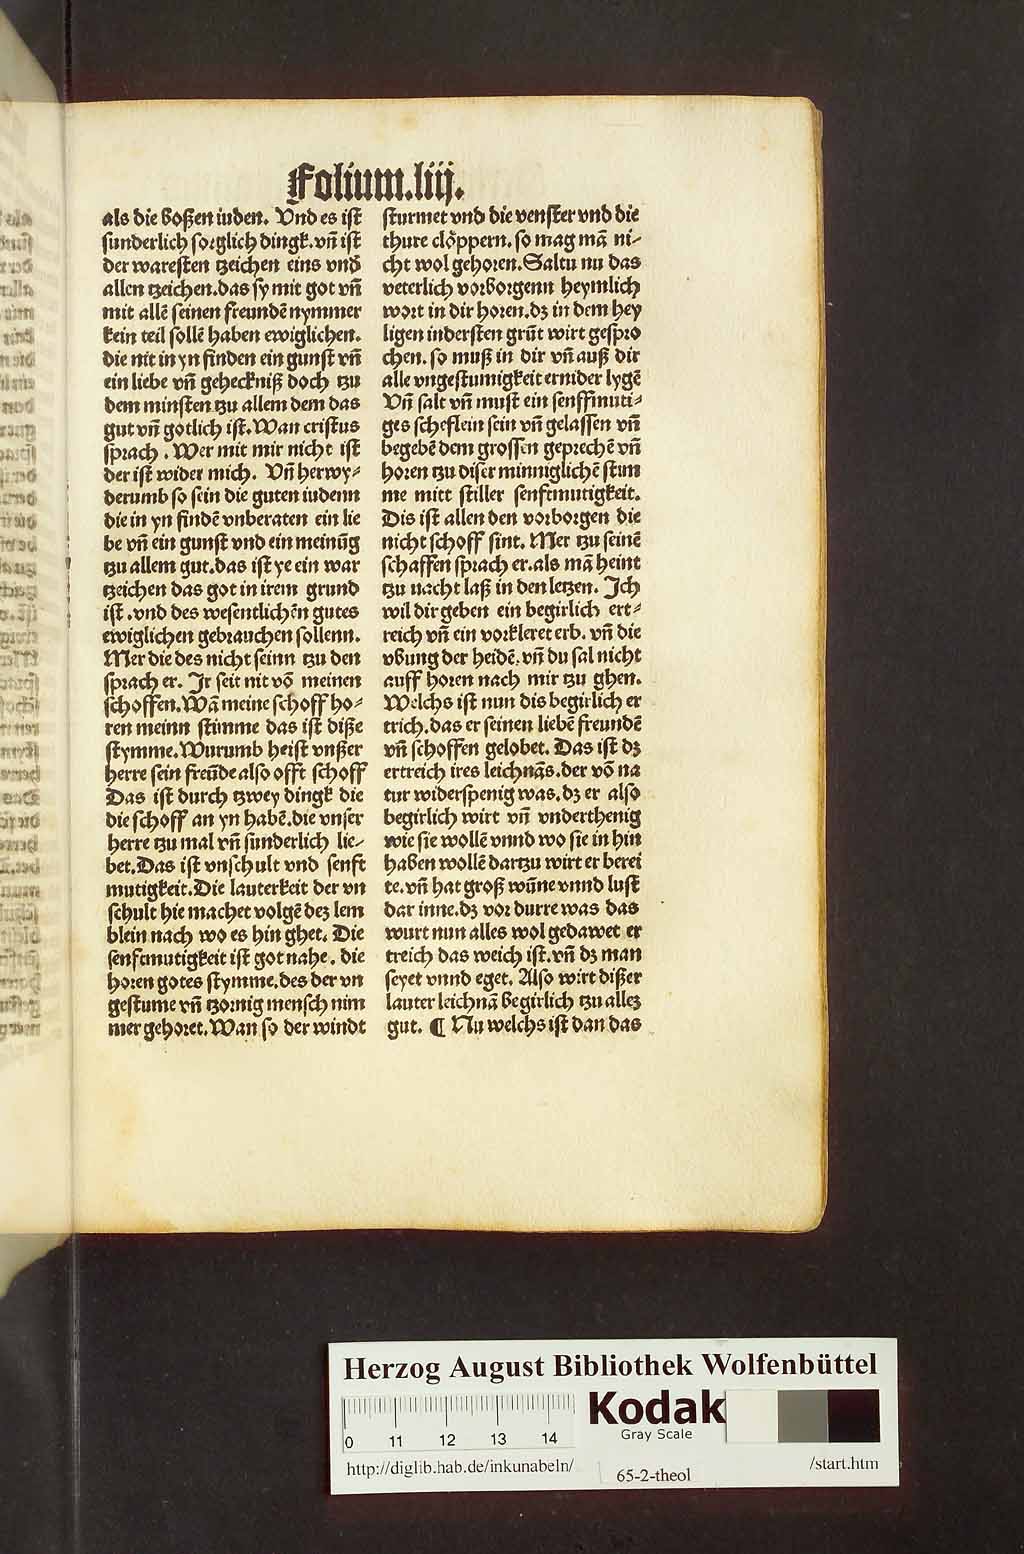 Folium.liij.
als die boßen iuden. Vnd es ist
sunderlich sorglich dingk. vn̄ ist
der waresten tzeichen eins vnd̄
allen tzeichen. das sy mit got vn̄
mit allē seinen freundē nymmer
kein teil sollē haben ewiglichen.
die nit in yn finden ein gunst vn̄
ein liebe vn̄ geheckniß doch tzu
dem minsten tzu allem dem das
gut vn̄ gotlich ist. Wan cristus
sprach. Wer mit mir nicht ist
der ist wider mich. Vn̄ herwy-
derumb so sein die guten iudenn
die in yn findē vnberaten ein lie
be vn̄ ein gunst vnd ein meinūg
tzu allem gut. das ist ye ein war
tzeichen das got in irem grund
ist. vnd des wesentlichēn gutes
ewiglichen gebrauchen sollenn.
Mer die des nicht seinn tzu den
sprach er. Ir seit nit vō meinen
schoffen. Wā meine schoff ho-
ren meinn stimme das ist diße
stymme. Wurumb heist vnßer
herre sein freūde also offt schoff
Das ist durch tzwey dingk die
die schoff an yn habē. die vnser
herre tzu mal vn̄ sunderlich lie-
bet. Das ist vnschult vnd senft
mutigkeit. Die lauterkeit der vn
schult hie machet volgē dez lem
blein nach wo es hin ghet. Die
senftmutigkeit ist got nahe. die
horen gotes stymme. des der vn
gestume vn̄ tzornig mensch nim
mer gehoret. Wan so der windt
sturmet vnd die venster vnd die
thure clöppern. so mag mā ni-
cht wol gehoren. Saltu nu das
veterlich vorborgenn heymlich
wort in dir horen. dz in dem hey
ligen indersten grūt wirt gespro
chen. so muß in dir vn̄ auß dir
alle vngestumigkeit ernider lygē
Vn̄ salt vn̄ must ein senffmuti-
ges scheflein sein vn̄ gelassen vn̄
begebē dem grossen geprechē vn̄
horen tzu diser minniglichē stim
me mitt stiller senftmutigkeit.
Dis ist allen den vorborgen die
nicht schoff sint. Mer tzu seinē
schaffen sprach er. als mā heint
tzu nacht laß in den letzen. Ich
wil dir geben ein begirlich ert-
reich vn̄ ein vorkleret erb. vn̄ die
vbung der heidē. vn̄ du sal nicht
auff horen nach mir tzu ghen.
Welchs ist nun dis begirlich er
trich. das er seinen liebē freundē
vn̄ schoffen gelobet. Das ist dz
ertreich ires leichnās. der vō na
tur widerspenig was. dz er also
begirlich wirt vn̄ vnderthenig
wie sie wollē vnnd wo sie in hin
haben wollē dartzu wirt er berei
te. vn̄ hat groß wūne vnnd lust
dar inne. dz vor durre was das
wurt nun alles wol gedawet er
treich das weich ist. vn̄ dz man
seyet vnnd eget. Also wirt dißer
lauter leichnā begirlich tzu allez
gut. ¶ Nu welchs ist dan das
Herzog August Bibliothek Wolfenbüttel
Kodak
Gray Scale
0 11 12 13 14
http://diglib.hab.de/inkunabeln/
65-2-theol
/start.htm